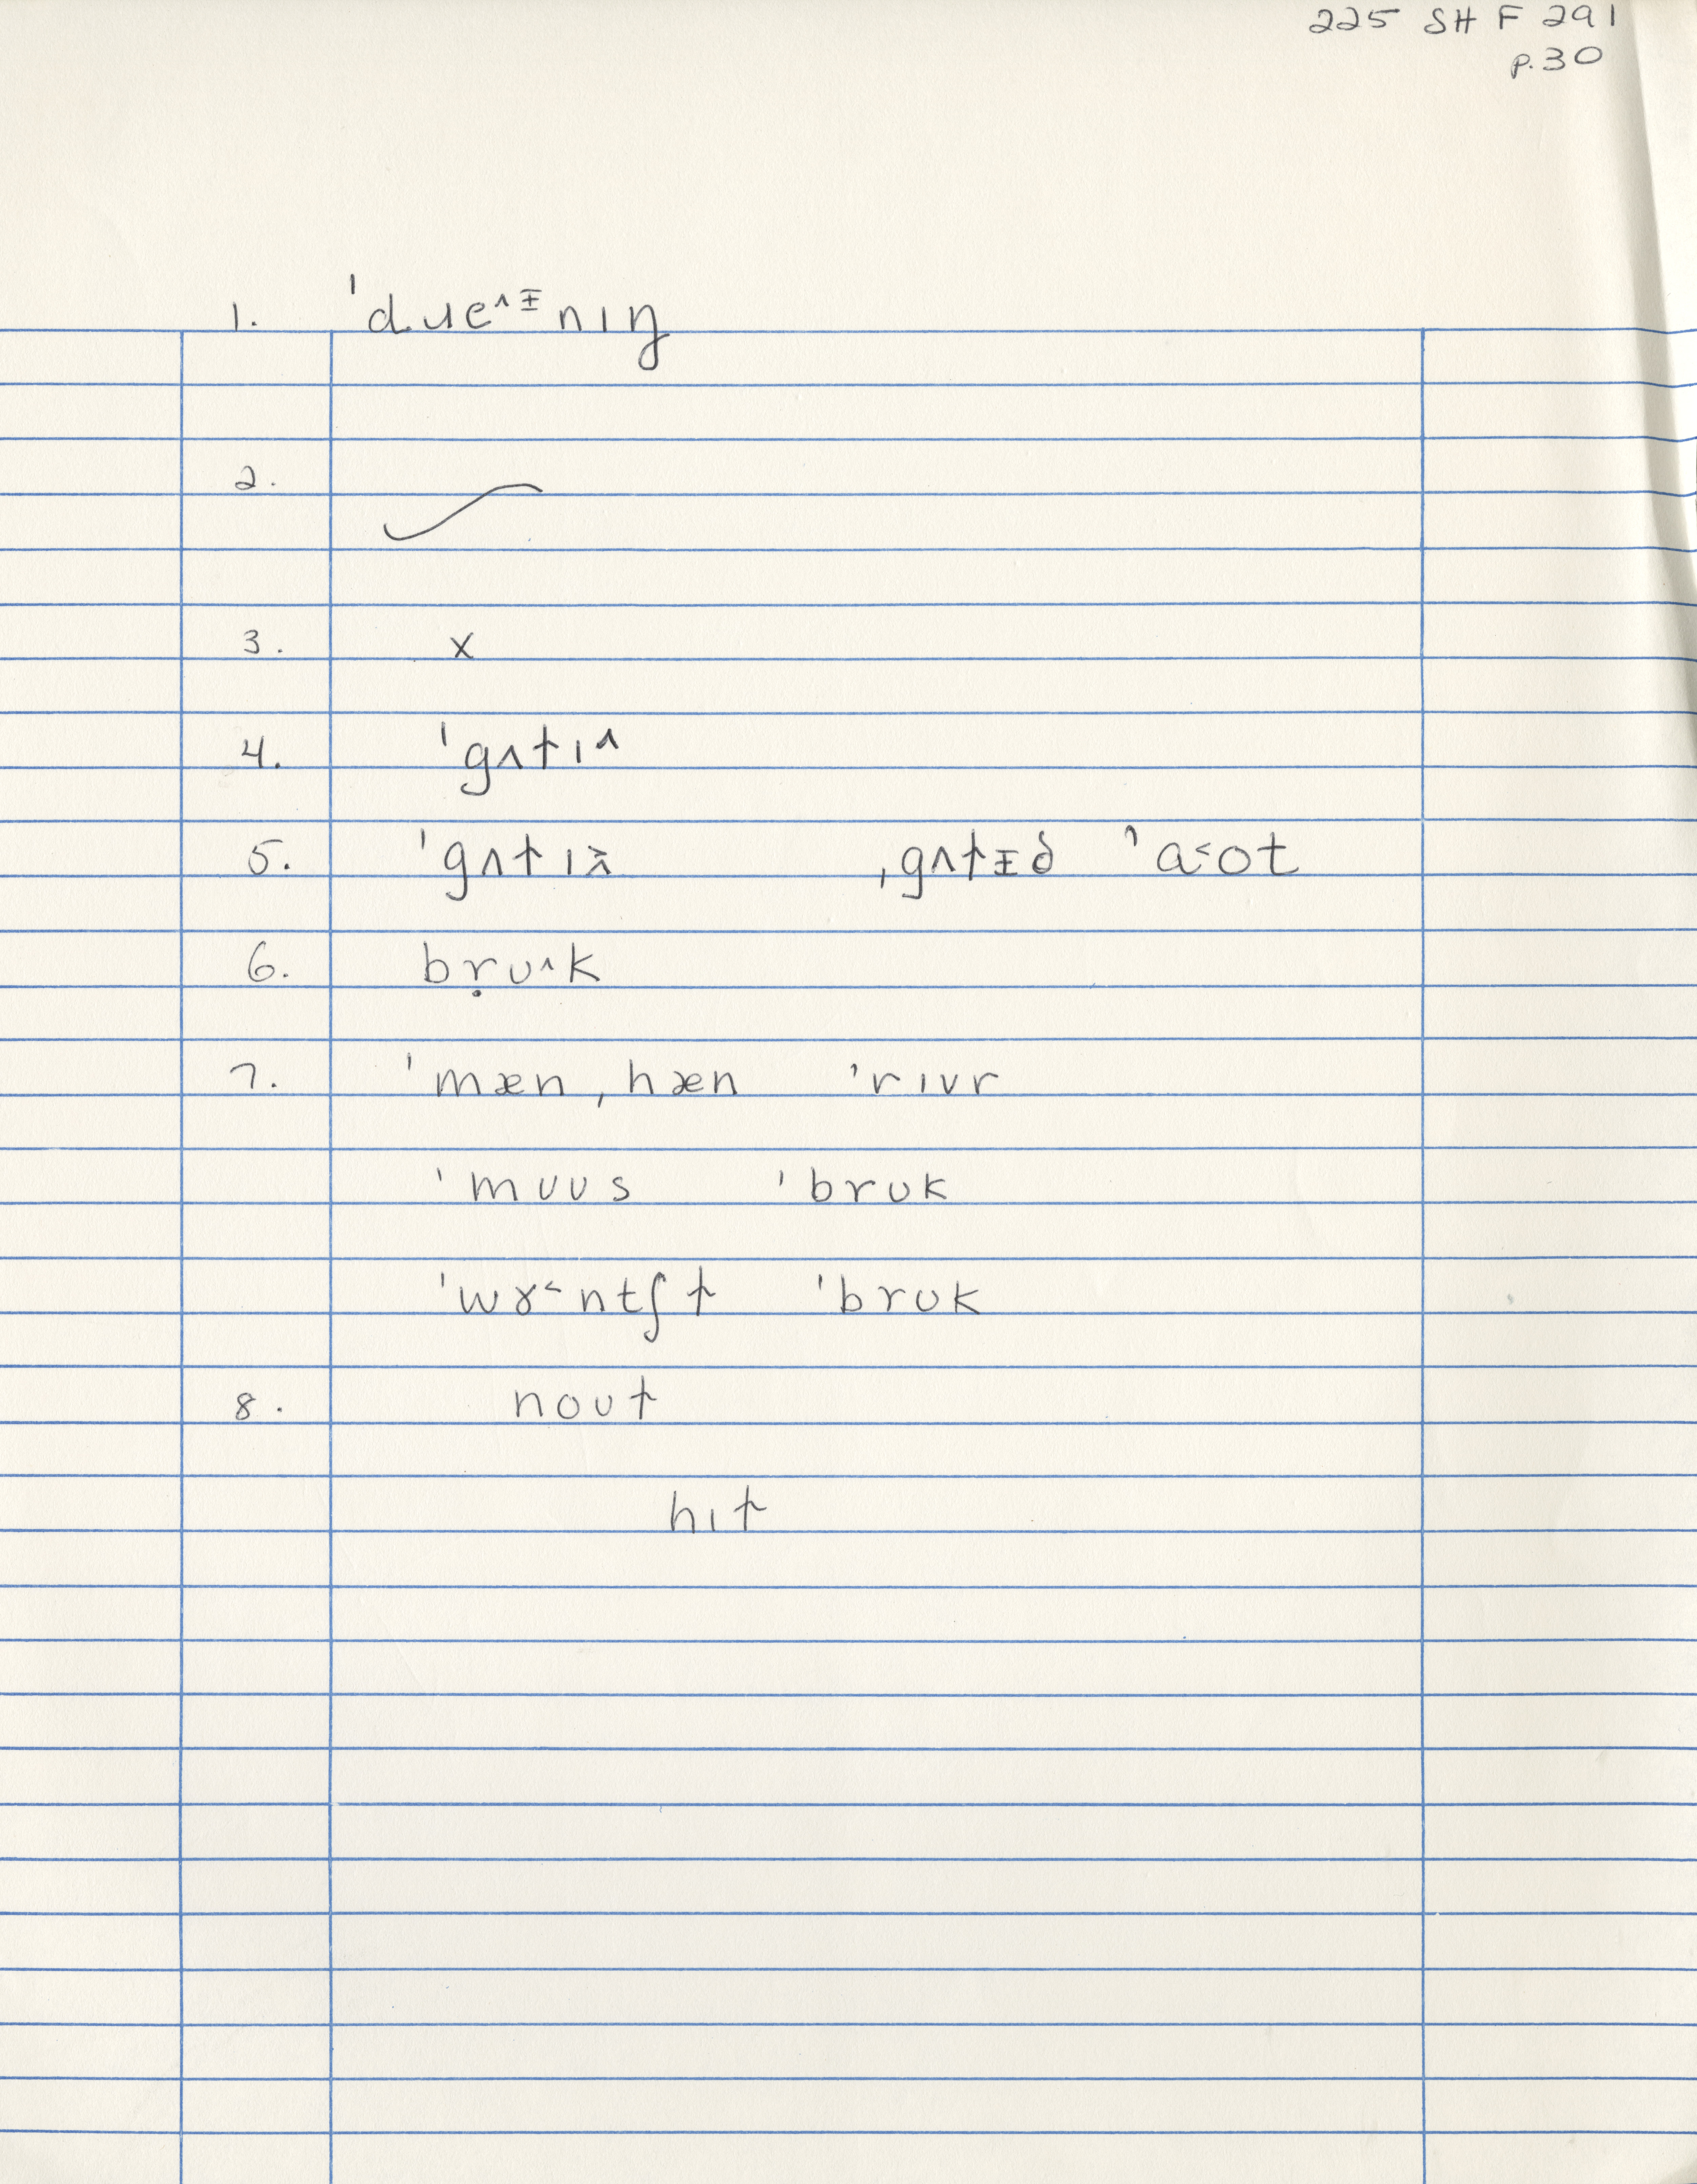 225 SH F 291
p.30
1. ˈdɹeˆᵻnɪŋ
2. ✓
3. x
4. ˈgʌtɪ˄
5. ˈgʌtɪ ˌgʌtᵻd ˈa˂ot
6. bṛʊ˄k
7. ˈmæn ˌhæn ˈrɪvr
ˈmuʊs ˈbrʊk
ˈwɤ˂ntʃt ˈbrʊk
8. noʊt
hɪt